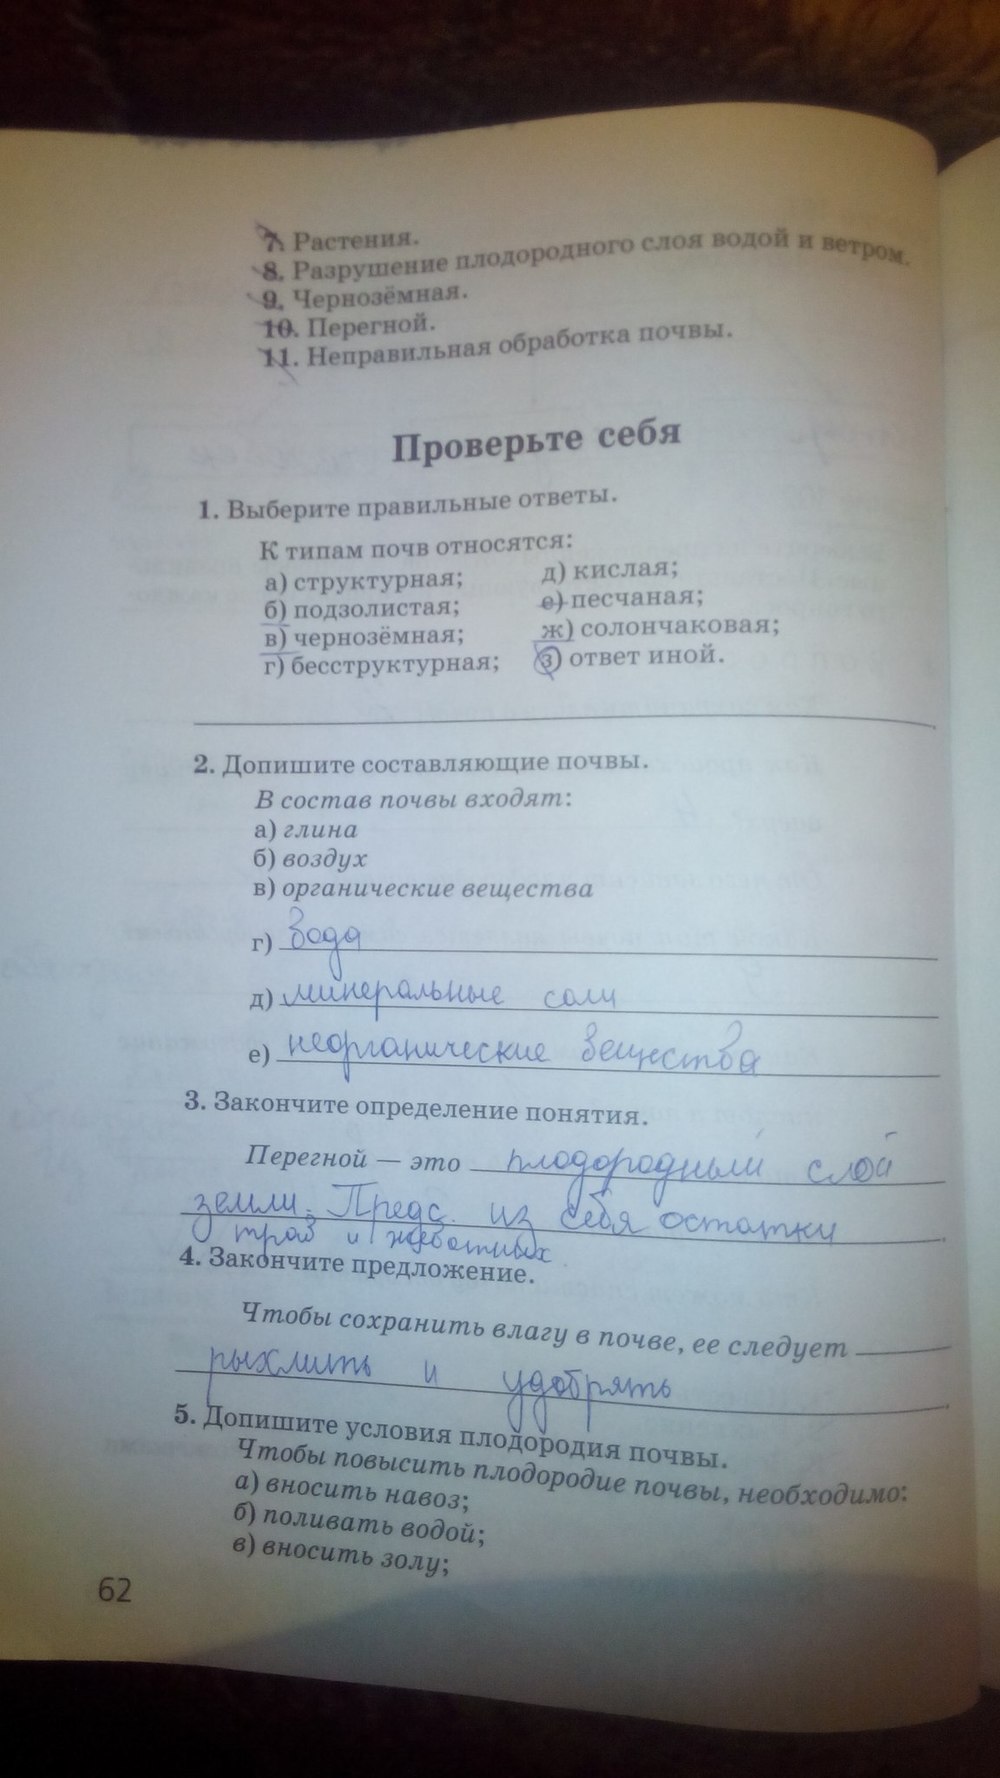 7. Растения.
8. Разрушение плодородного слоя водой и ветром.
9. Чернозёмная.
10. Перегной.
11. Неправильная обработка почвы.
Проверьте себя
1. Выберите правильные ответы.
К типам почв относятся:
а) структурная;
б) подзолистая;
в) чернозёмная;
г) бесструктурная;
д) кислая;
е) песчаная;
ж) солончаковая;
з) ответ иной.
2. Допишите составляющие почвы.
В состав почвы входят:
а) глина
б) воздух
в) органические вещества
г) вода
д) минеральные соли
е) неорганические вещества
3. Закончите определение понятия.
Перегной — это плодородный слой
земли. Предс. из себя остатки
трав и животных
4. Закончите предложение.
Чтобы сохранить влагу в почве, ее следует
рыхлить и удобрять
5. Допишите условия плодородия почвы.
Чтобы повысить плодородие почвы, необходимо:
а) вносить навоз;
б) поливать водой;
в) вносить золу;
62